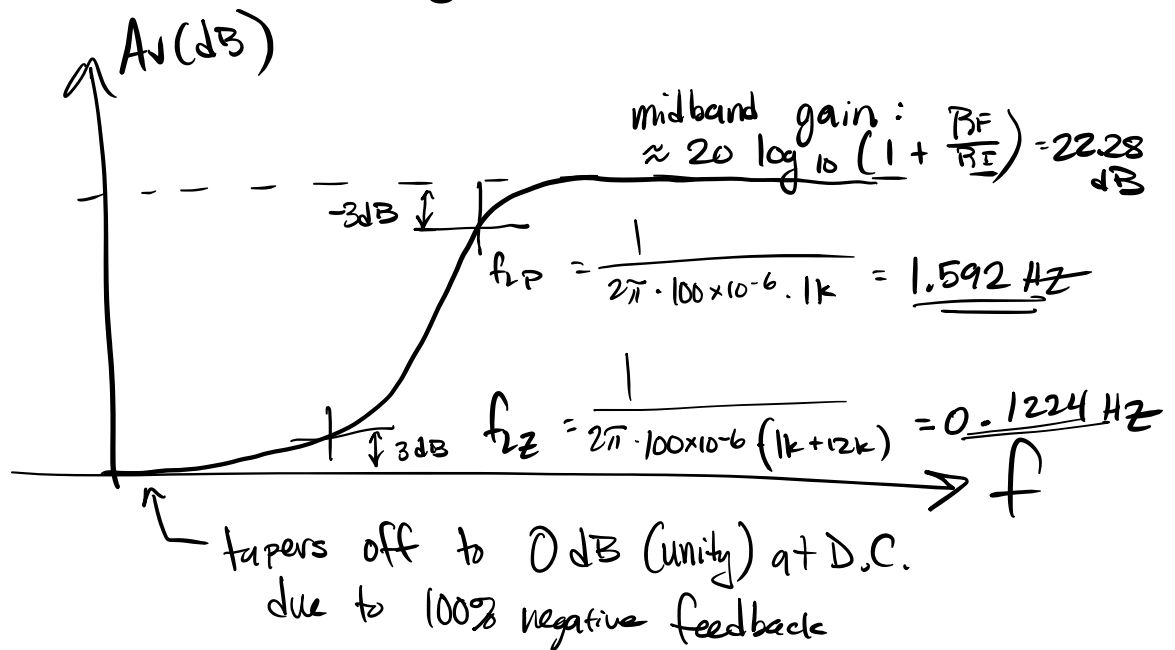 Av(dB)
midband gain:
≈ 20 log10 (1 + RF/RI) = 22.28 dB
-3dB
fLP = 1/(2π · 100×10^-6 · 1k) = 1.592 Hz
fLZ = 1/(2π · 100×10^-6 (1k+12k)) = 0.1224 Hz
3dB
f
tapers off to 0 dB (unity) at D.C.
due to 100% negative feedback